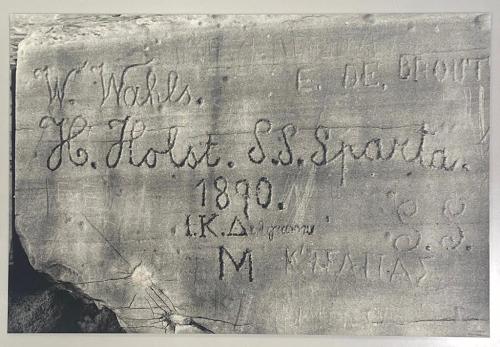 W. Wahls. E. DE. BROUT
H. Holst. S.S. Sparta.
1890.
I.K.Δ
S.S.
M